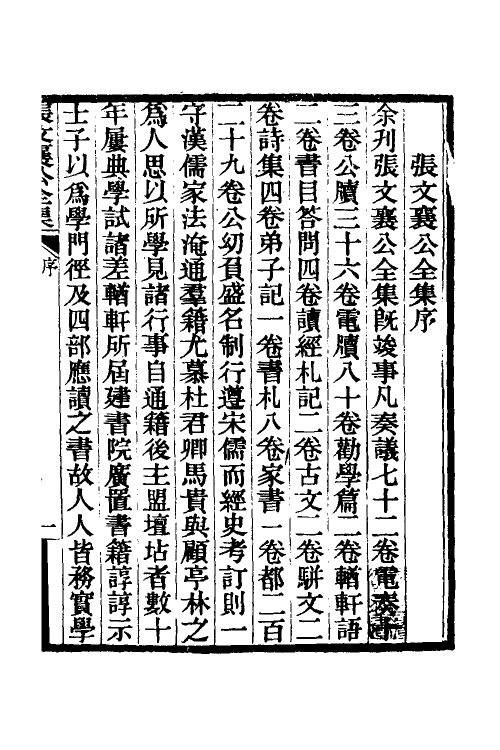 張文襄公全集序
余刊張文襄公全集既竣事凡奏議七十二卷電奏十
三卷公牘三十六卷電牘八十卷勸學篇二卷輶軒語
二卷書目答問四卷讀經札記二卷古文二卷駢文二
卷詩集四卷弟子記一卷書札八卷家書一卷都二百
二十九卷公幼負盛名制行遵宋儒而經史考訂則一
守漢儒家法淹通羣籍尤慕杜君卿馬貴與顧亭林之
爲人思以所學見諸行事自通籍後主盟壇坫者數十
年屢典學試諸差輶軒所屆建書院廣置書籍諄諄示
士子以爲學門徑及四部應讀之書故人人皆務實學
張文襄公全集
序
一